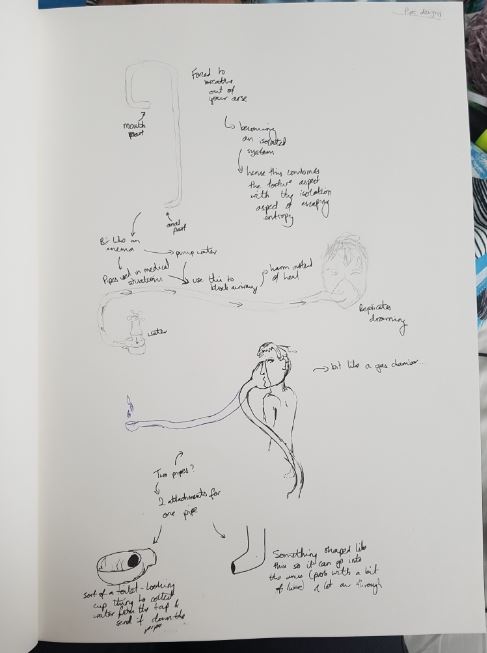 Pipe designs
Forced to
breathe
out of
your arse
mouth
part
becoming
an isolated
system
hence this combines
the torture aspect
with the isolation
aspect of escaping
entropy
anal
part
Bit like an
enema
pump water
Pipes used in medical
situations
use this to
block airway
harm instead
of heal
water
Replicates
drowning
bit like a gas chamber
Two pipes?
2 attachments for
one pipe
sort of a toilet-looking
cup thing to collect
water from the tap &
send it down the
pipe
Something shaped like
this so it can go into
the anus (prob with a bit
of lube) & let air through